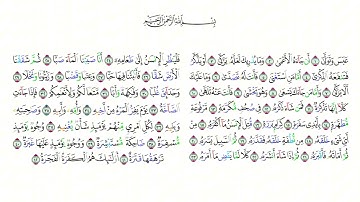 بِسْمِ ٱللَّهِ ٱلرَّحْمَٰنِ ٱلرَّحِيمِ
عَبَسَ وَتَوَلَّىٰٓ ١ أَن جَآءَهُ ٱلْأَعْمَىٰ ٢ وَمَا يُدْرِيكَ لَعَلَّهُۥ يَزَّكَّىٰٓ ٣ أَوْ يَذَّكَّرُ
فَتَنفَعَهُ ٱلذِّكْرَىٰٓ ٤ أَمَّا مَنِ ٱسْتَغْنَىٰ ٥ فَأَنتَ لَهُۥ تَصَدَّىٰ ٦ وَمَا عَلَيْكَ
أَلَّا يَزَّكَّىٰ ٧ وَأَمَّا مَن جَآءَكَ يَسْعَىٰ ٨ وَهُوَ يَخْشَىٰ ٩ فَأَنتَ عَنْهُ تَلَهَّىٰ ١٠
كَلَّآ إِنَّهَا تَذْكِرَةٌ ١١ فَمَن شَآءَ ذَكَرَهُۥ ١٢ فِى صُحُفٍ مُّكَرَّمَةٍ ١٣ مَّرْفُوعَةٍ
مُّطَهَّرَةٍۭ ١٤ بِأَيْدِى سَفَرَةٍ ١٥ كِرَامٍۭ بَرَرَةٍ ١٦ قُتِلَ ٱلْإِنسَٰنُ مَآ أَكْفَرَهُۥ ١٧ مِنْ
أَىِّ شَىْءٍ خَلَقَهُۥ ١٨ مِن نُّطْفَةٍ خَلَقَهُۥ فَقَدَّرَهُۥ ١٩ ثُمَّ ٱلسَّبِيلَ يَسَّرَهُۥ ٢٠
ثُمَّ أَمَاتَهُۥ فَأَقْبَرَهُۥ ٢١ ثُمَّ إِذَا شَآءَ أَنشَرَهُۥ ٢٢ كَلَّا لَمَّا يَقْضِ مَآ أَمَرَهُۥ ٢٣
فَلْيَنظُرِ ٱلْإِنسَٰنُ إِلَىٰ طَعَامِهِۦٓ ٢٤ أَنَّا صَبَبْنَا ٱلْمَآءَ صَبًّا ٢٥ ثُمَّ شَقَقْنَا
ٱلْأَرْضَ شَقًّا ٢٦ فَأَنۢبَتْنَا فِيهَا حَبًّا ٢٧ وَعِنَبًا وَقَضْبًا ٢٨ وَزَيْتُونًا وَنَخْلًا ٢٩
وَحَدَآئِقَ غُلْبًا ٣٠ وَفَٰكِهَةً وَأَبًّا ٣١ مَّتَٰعًا لَّكُمْ وَلِأَنْعَٰمِكُمْ ٣٢ فَإِذَا جَآءَتِ
ٱلصَّآخَّةُ ٣٣ يَوْمَ يَفِرُّ ٱلْمَرْءُ مِنْ أَخِيهِ ٣٤ وَأُمِّهِۦ وَأَبِيهِ ٣٥ وَصَٰحِبَتِهِۦ
وَبَنِيهِ ٣٦ لِكُلِّ ٱمْرِئٍ مِّنْهُمْ يَوْمَئِذٍ شَأْنٌ يُغْنِيهِ ٣٧ وُجُوهٌ يَوْمَئِذٍ
مُّسْفِرَةٌ ٣٨ ضَاحِكَةٌ مُّسْتَبْشِرَةٌ ٣٩ وَوُجُوهٌ يَوْمَئِذٍ عَلَيْهَا غَبَرَةٌ ٤٠
تَرْهَقُهَا قَتَرَةٌ ٤١ أُو۟لَٰٓئِكَ هُمُ ٱلْكَفَرَةُ ٱلْفَجَرَةُ ٤٢